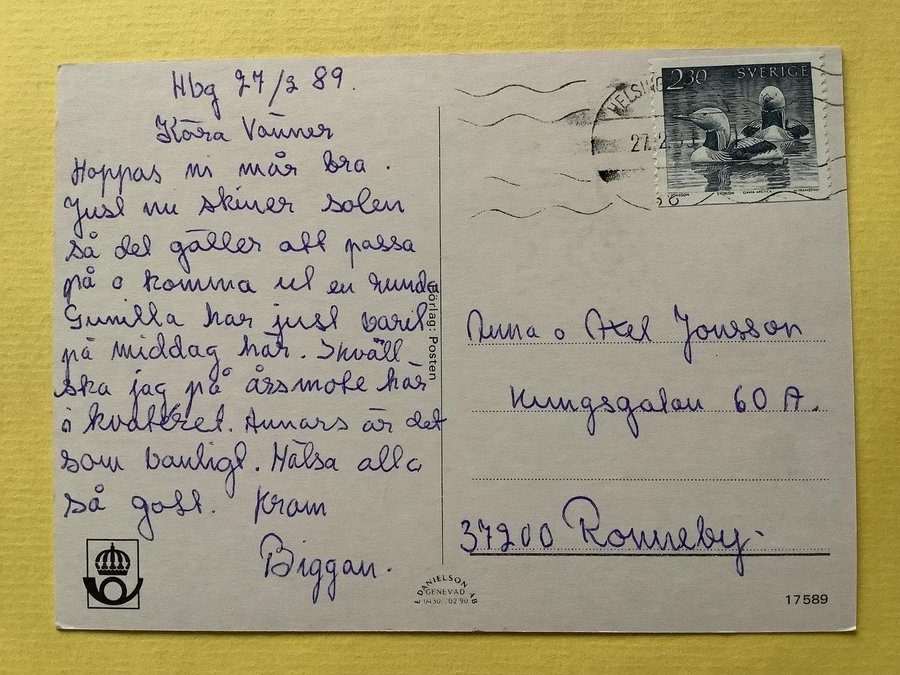 Hbg 27/2 89.
Kära Vänner
Hoppas ni mår bra.
Just nu skiner solen
så det gäller att passa
på o komma ut en runda
Gunilla har just varit
på middag här. Ikväll
ska jag på årsmöte här
i kvarteret. Annars är det
som vanligt. Hälsa alla
så gott. Kram
Biggan.
Förlag: Posten
E DANIELSON AB
GENEVAD
0430/702 90
HELSING
27.2.
2.30 SVERIGE
Anna o Axel Jonsson
Kungsgatan 60 A.
37200 Ronneby.
17589